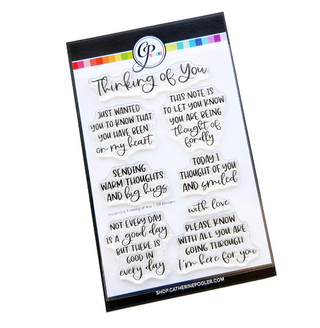 CP
Thinking of You
JUST WANTED
YOU TO KNOW THAT
YOU HAVE BEEN
on my heart
THIS NOTE IS
TO LET YOU KNOW
YOU ARE BEING
thought of
fondly
SENDING
WARM THOUGHTS
AND big hugs
TODAY I
THOUGHT OF YOU
AND smiled
with love
NOT EVERY DAY
IS A good day
BUT THERE IS
GOOD IN
every day
PLEASE KNOW
WITH ALL YOU ARE
GOING THROUGH
I'm here for you
SHOP.CATHERINEPOOLER.COM